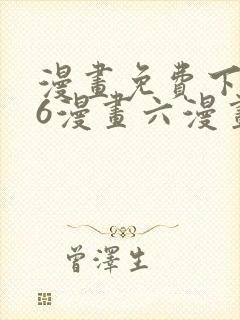 漫畫免費下
6漫畫六漫畫
曾澤生